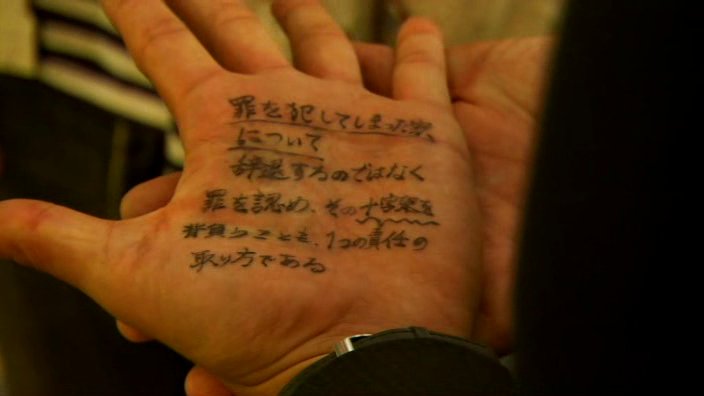 罪を犯してしまった案
について
辞退するのではなく
罪を認め、その十字架を
背負うことも、1つの責任の
取り方である